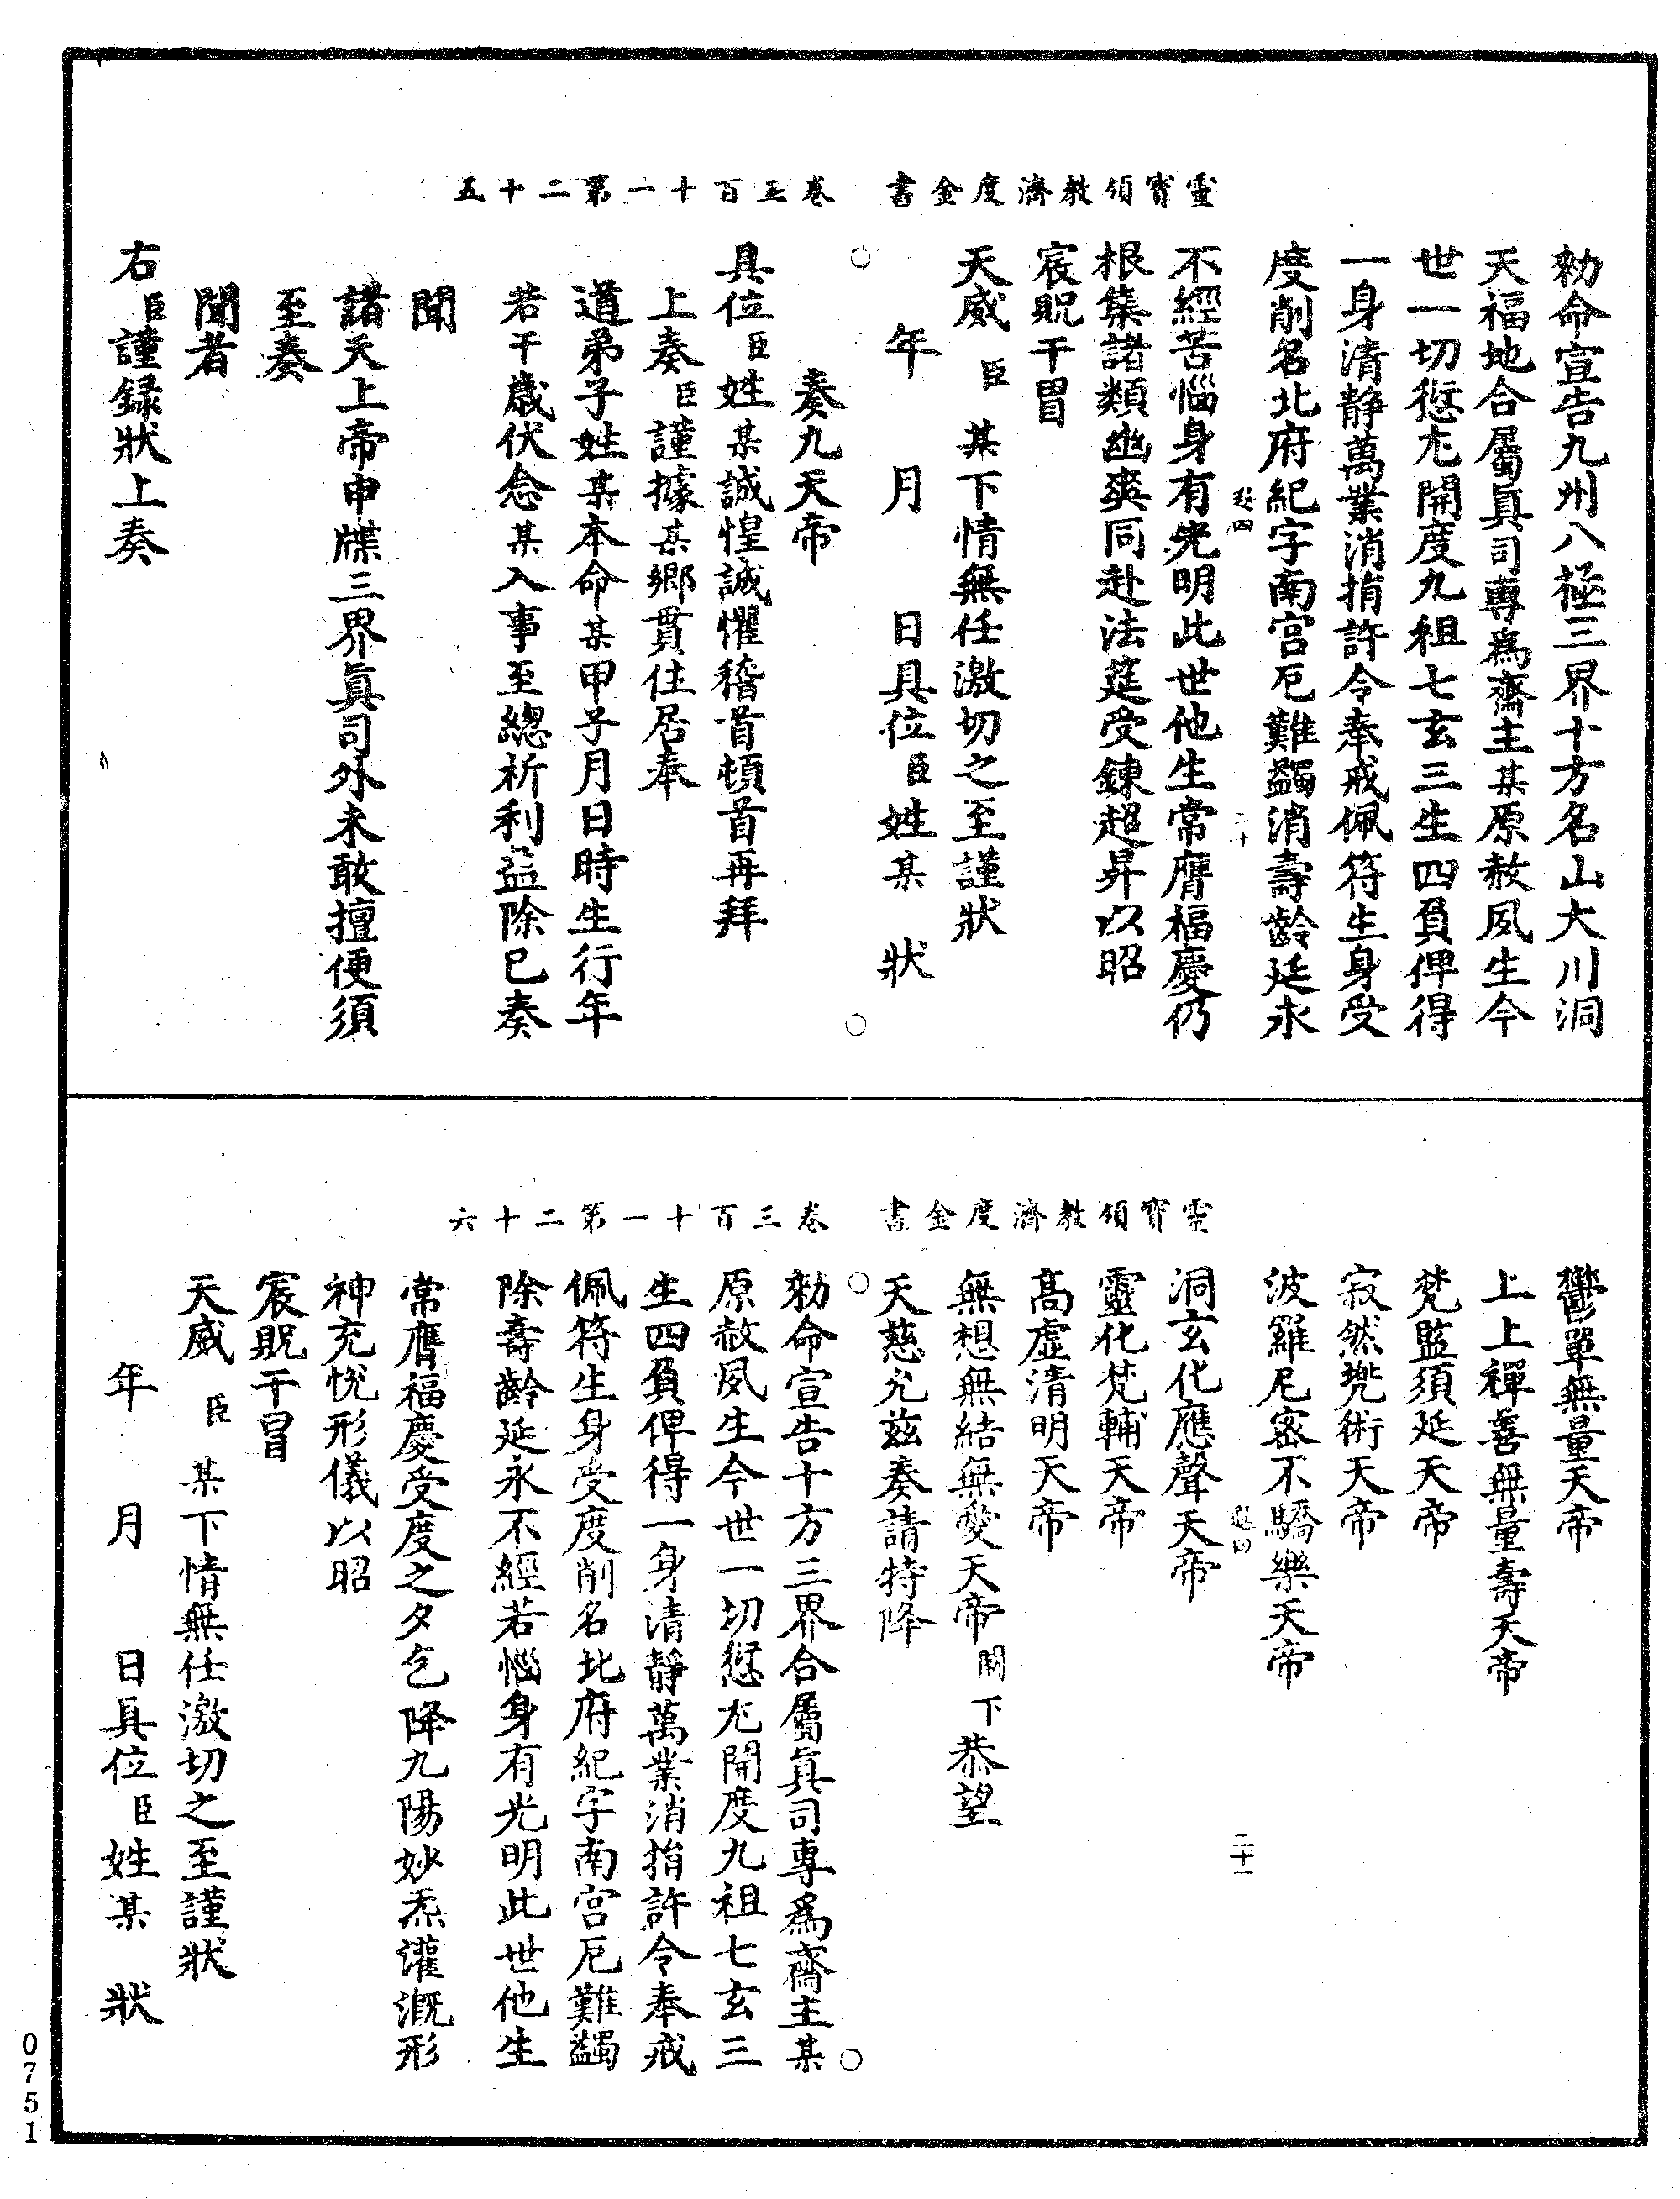 靈寶領教濟度金書　卷三百十一第二十五
勑命宣告九州八極三界十方名山大川洞
天福地合屬眞司專爲齋主某原赦夙生今
世一切愆尤開度九祖七玄三生四負俾得
一身清靜萬業消捐許令奉戒佩符生身受
度削名北府紀字南宫厄難蠲消壽齡延永
不經苦惱身有光明此世他生常膺福慶仍
根集諸類幽爽同赴法筵受鍊超昇以昭
宸貺干冒
天威　臣　某下情無任激切之至謹狀
年　月　日具位臣姓某　狀
奏九天帝
具位臣姓某誠惶誠懼稽首頓首再拜
上奏臣謹據某鄉貫住居奉
道弟子姓某本命某甲子月日時生行年
若干歲伏念某入事至總祈利益除已奏
聞
諸天上帝申牒三界眞司外未敢擅便須
至奏
聞者
右臣謹録狀上奏
靈寶領教濟度金書　卷三百十一第二十六
鬱單無量天帝
上上禪善無量壽天帝
梵監須延天帝
寂然兠術天帝
波羅尼密不驕樂天帝
二十一
洞玄化應聲天帝
靈化梵輔天帝
高虛清明天帝
無想無結無愛天帝闕下恭望
天慈允兹奏請特降
勑命宣告十方三界合屬眞司專爲齋主某
原赦夙生今世一切愆尤開度九祖七玄三
生四負俾得一身清靜萬業消捐許令奉戒
佩符生身受度削名北府紀字南宫厄難蠲
除壽齡延永不經若惱身有光明此世他生
常膺福慶受度之夕乞降九陽妙炁灌溉形
神充悅形儀以昭
宸貺干冒
天威　臣　某下情無任激切之至謹狀
年　月　日具位臣姓某　狀
0751